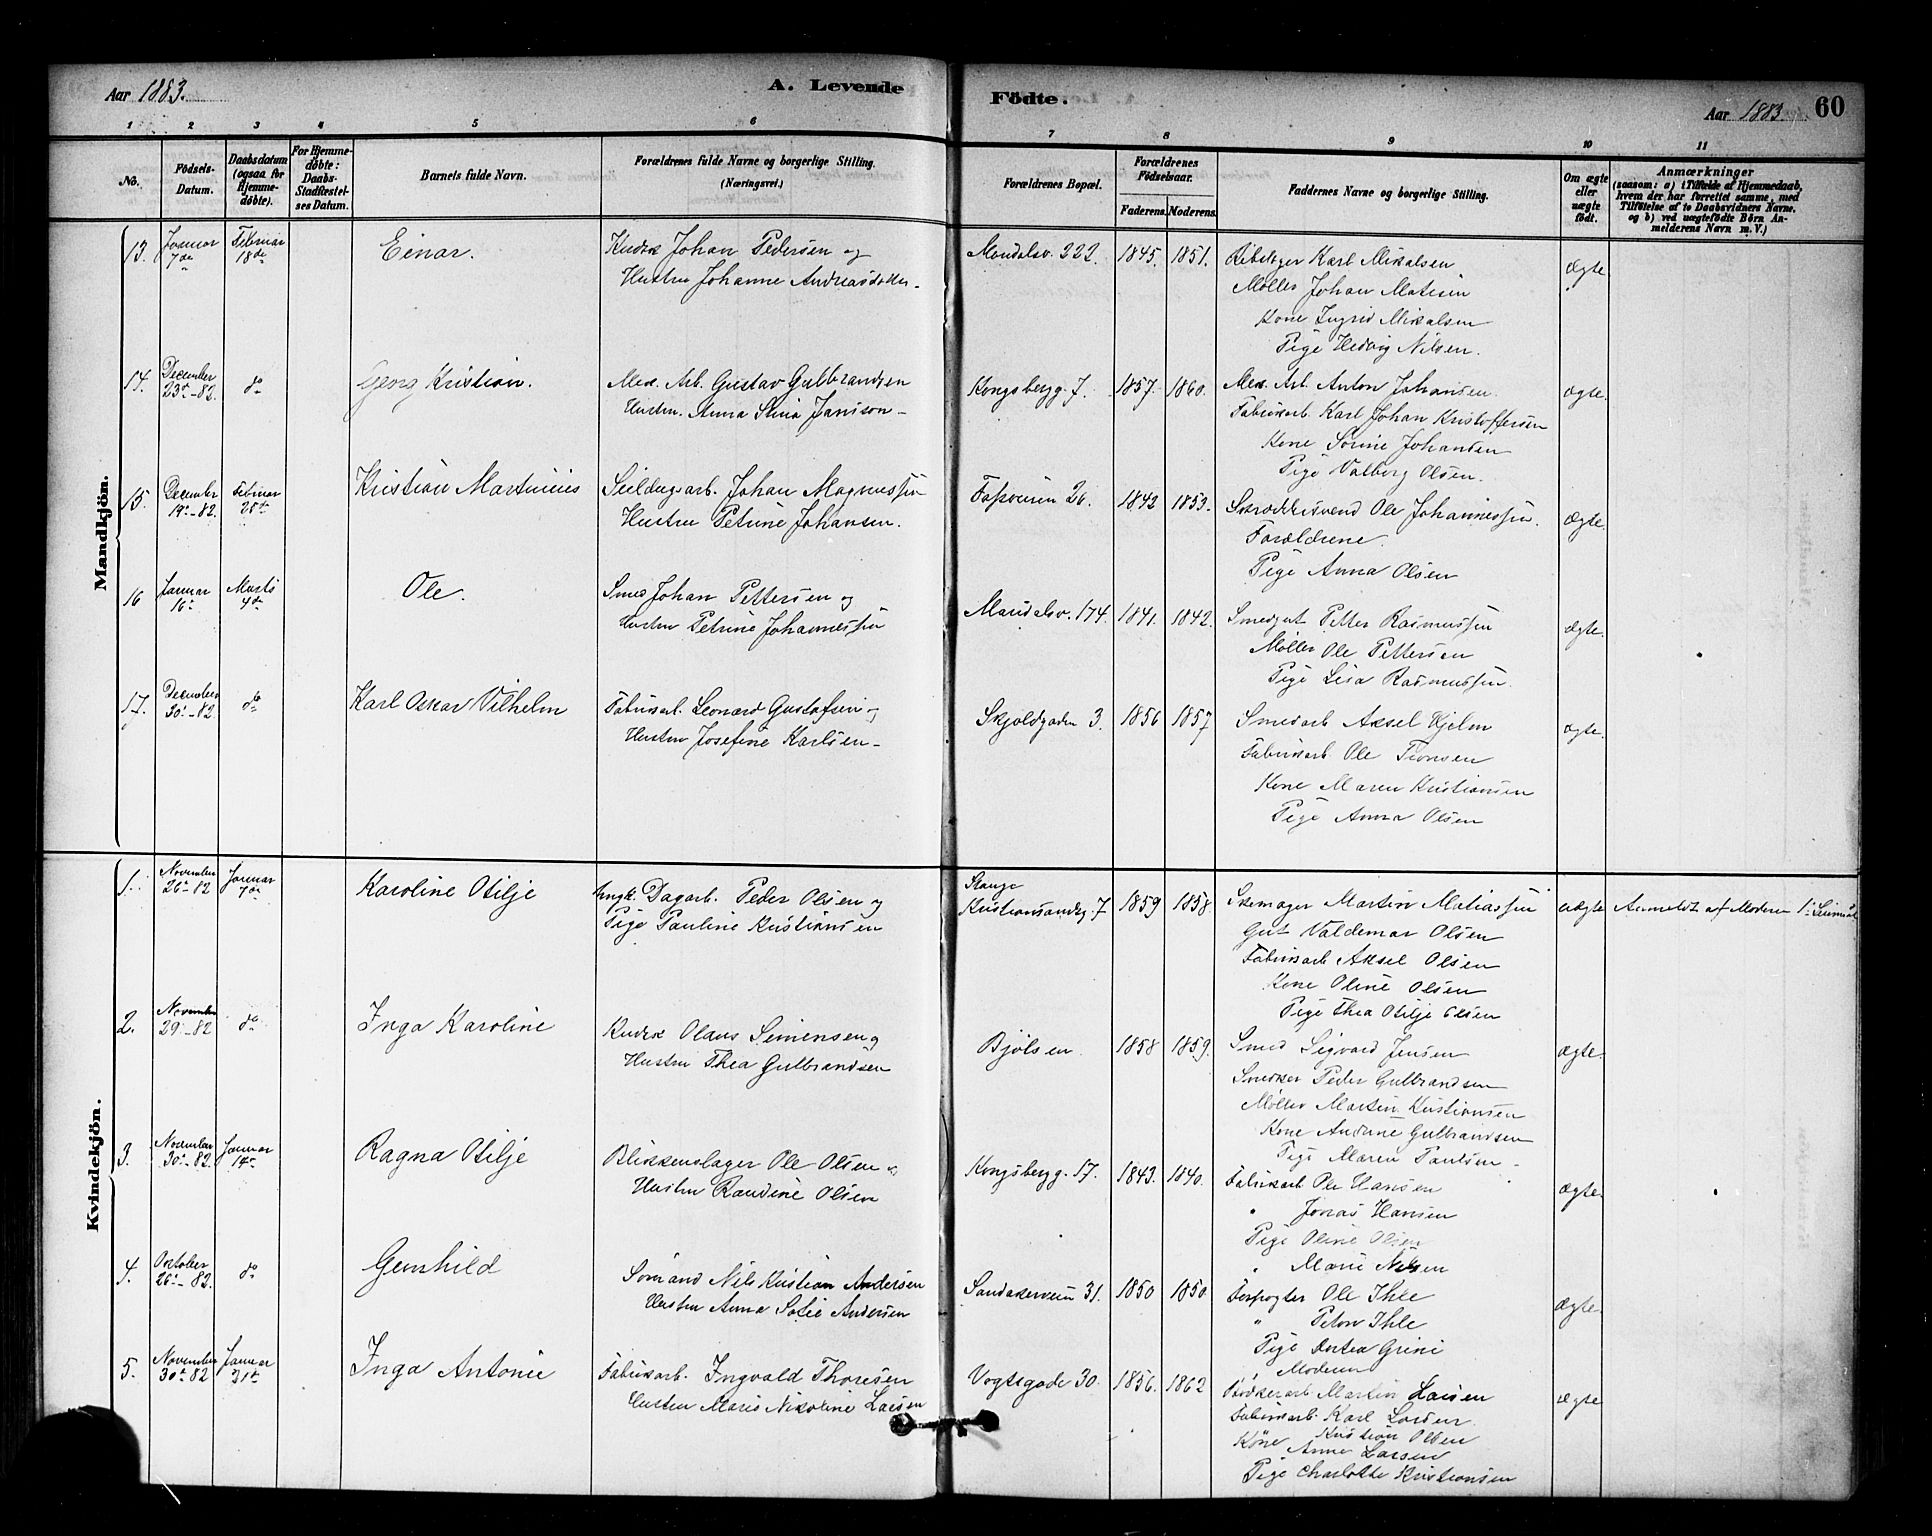 Aar 1883.
A. Levende
Födte.
Aar 1883.
60
1 2 3 4 5 6 7 8 9 10 11
No.
Födsels-
Datum.
Daabsdatum
(ogsaa for
Hjemme-
döbte).
For Hjemme-
döbte:
Daabs-
Stadfæstel-
ses Datum.
Barnets fulde Navn.
Forældrenes fulde Navne og borgerlige Stilling.
(Næringsvei.)
Forældrenes Bopæl.
Forældrenes
Födselsaar.
Faderens. Moderens.
Faddernes Navne og borgerlige Stilling.
Om ægte
eller
uægte
födt.
Anmærkninger
(saasom: a) i Tilfælde af Hjemmedaab,
hvem der har forrettet samme, med
Tilföielse af to Daabsvidners Navne,
og b) ved uægtefödte Börn An-
melderens Navn m. V.)
Mandkjön.
13. Januar 7de Februar 18de Einar. Kudsk Johan Pedersen og
Hustru Johanne Andreasdatter
Maridalsv. 222. 1845. 1851. Karl Mikalsen ægte
Møller Johan Matisen
Kone Ingrid Mikalsen
Pige Hedvig Nilsen.
14. December 23de-82. do Georg Kristian. Mek. Arb. Gustav Gulbrandsen
Hustru Anna Stina Jansson
Kongsbergg. 7. 1857. 1860. Mek. Arb. Anton Johansen. ægte.
Fabrikarb. Karl Johan Kristoffersen
Kone Sorine Johansen
Pige Valborg Olsen.
15. December 19de-82. Februar 25de Kristian Martinius Seildugsarb. Johan Magnussen
Hustru Petrine Johansen.
Fossveien 26. 1842 1853. Skræddersvend Ole Johannessen. ægte.
Forældrene.
Pige Anna Olsen
16 Januar 16de Marts 4de Ole. Smed Johan Pettersen og
Hustru Petrine Johannessen
Maridalsv. 174. 1841. 1842. Smedgut Petter Rasmussen ægte.
Møller Ole Pettersen
Pige Lisa Rasmussen.
17. December 30de-82. do Karl Oskar Vilhelm Fabrikarb. Leonard Gustafsen og
Hustru Josefine Karlsen
Skjoldgaden 3. 1856 1857 Smedarb Aksel Hjelm ægte.
Fabrikarb. Ole Tronsen
Kone Maren Kristiansen
Pige Anna Olsen
Kvindekjön.
1. November 26de-82 Januar 7de Karoline Otilje Ungk. Dagarb. Peder Olsen og
Pige Pauline Kristiansen
Stange
Kristiansandsg. 7 1859 1858. Skomager Martin Matiassen uægte Anmeldt af Moderen
Gut Valdemar Olsen
Fabrikarb Aksel Olsen
Kone Oline Olsen
Pige Thea Otilje Olsen
2. November 29de-82 do Inga Karoline Kudsk Olaus Simensen og
Hustru Thea Gulbrandsen
Bjølsen. 1858 1859. Smed Sigvard Jensen ægte.
Peder Gulbrandsen
Møller Martin Kristiansen
Kone Andrine Gulbrandsen
Pige Maren Paulsen
3. November 30de-82. Januar 14de Ragna Otilje Blikkenslager Ole Olsen og
Hustru Randine Olsen
Kongsbergg. 17. 1843. 1840. Fabrikarb Ole Hansen ægte.
" Jonas Hansen
Pige Oline Olsen
" Marie Nilsen
4. Oktober 26de-82. do Gunhild Sømand Nils Kristian Andersen
Hustru Anna Sofie Andersen
Sandakerveien 31. 1850 1850. Forpagter Ole Ihle ægte.
" Ihle
Pige Antea Grini
Moderen
5. November 30de 82 Januar 21de Inga Antonie Fabrikarb. Ingvald Thoresen
Hustru Marie Nikoline Larsen
Vogtsgade 30. 1856. 1862 Martin Larsen ægte
Fabrikarb. Karl Larsen
Kristian Olsen
Kone Anne Larsen
Pige Charlotte Kristiansen